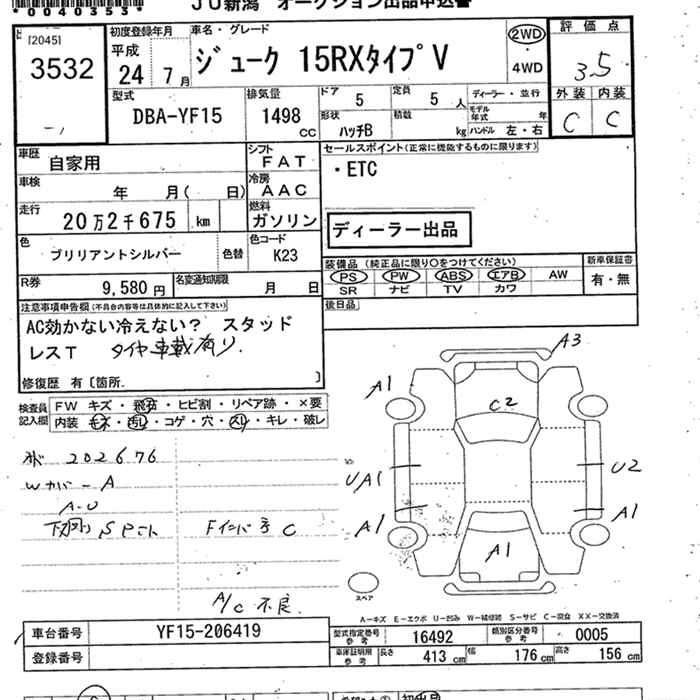 *0040353*
JU新潟 オークション出品申込書
[2045]
3532
初度登録年月
平成
24年 7月
車名・グレード
ジューク 15RXタイプV
2WD
4WD
評価点
3.5
外装 内装
C C
型式
DBA-YF15
排気量
1498
CC
ドア
5
定員
5人
形状
ハッチB
積載
kg
ディーラー・並行
モデル年式 年
ハンドル 左・右
車歴
自家用
シフト
FAT
車検
年 月( 日)
冷房
AAC
走行
20万2千675 km
燃料
ガソリン
色
ブリリアントシルバー
色替
色コード
K23
R券
9,580円
名変通知期限
月 日
セールスポイント(正常に機能するものに限ります)
・ETC
ディーラー出品
装備品(純正品に限り○をつけてください)
PS PW ABS エアB AW
SR ナビ TV カワ
新車保証書
有・無
後日品
注意事項申告欄(不具合内容等は具体的に記入して下さい)
AC効かない冷えない? スタッド
レスT タイヤ車載有り.
修復歴 有〔箇所. 〕
検査員記入欄
FW キズ・飛石・ヒビ割・リペア跡・×要
内装 キズ・汚れ・コゲ・穴・スレ・キレ・破レ
202676
Wカバー A
A-U
下廻り Sセット
C
A/C 不良
A3
A1
C2
UA1
U2
A1
A1
A1
スペア
A-キズ E-エクボ U-凹み W-補修跡 S-サビ C-腐食 XX-交換済
車台番号
YF15-206419
登録番号
型式指定番号 参考
16492
類別区分番号 参考
0005
車庫証明用 参考
長さ 413cm 幅 176cm 高さ 156cm